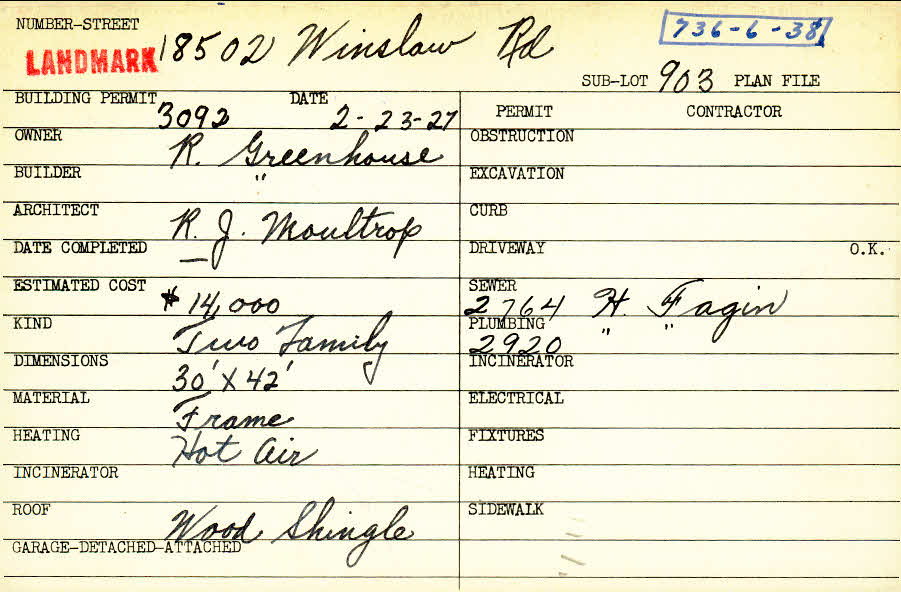 NUMBER-STREET
LANDMARK 18502 Winslow Rd 736-6-38
SUB-LOT 903 PLAN FILE
BUILDING PERMIT 3092 DATE 2-23-27
PERMIT CONTRACTOR
OWNER R. Greenhouse
OBSTRUCTION
BUILDER "
EXCAVATION
ARCHITECT R. J. Moultrop
CURB
DATE COMPLETED —
DRIVEWAY O.K.
ESTIMATED COST $14,000
SEWER 2764 H. Fagin
KIND Two Family
PLUMBING 2920 " "
DIMENSIONS 30' X 42'
INCINERATOR
MATERIAL Frame
ELECTRICAL
HEATING Hot Air
FIXTURES
INCINERATOR
HEATING
ROOF Wood Shingle
SIDEWALK
GARAGE-DETACHED-ATTACHED